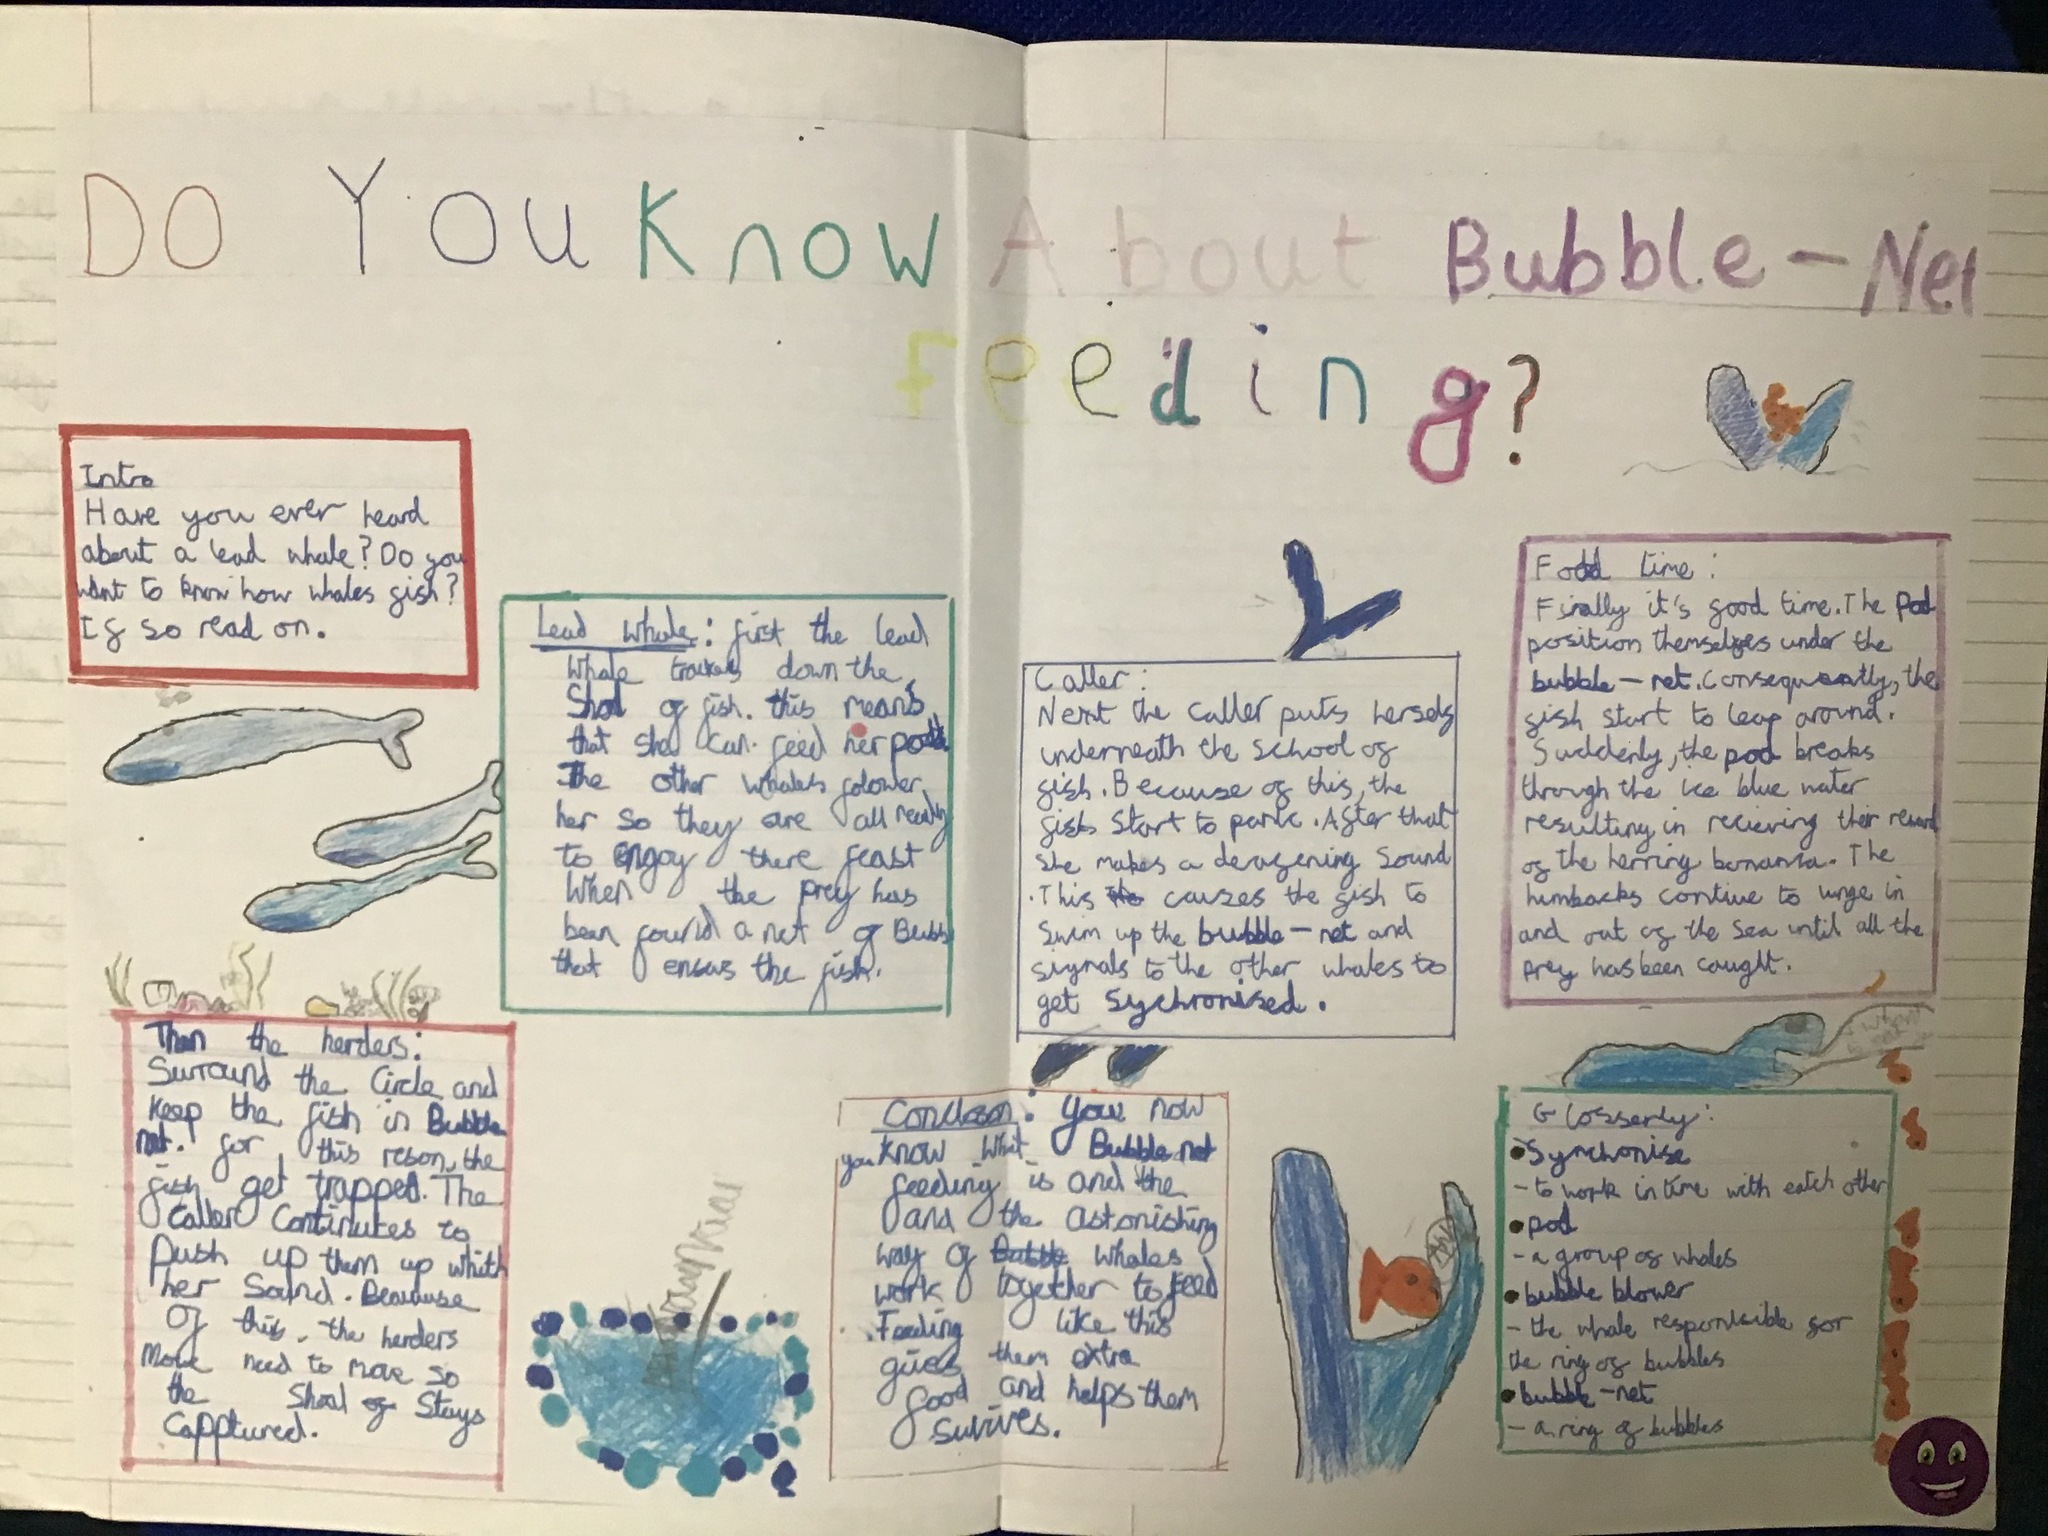 DO YOU Know About Bubble-Net
Feeding?
Intro
Have you ever heard
about a lead whale? Do you
want to know how whales fish?
If so read on.
Lead whale: first the lead
whale trackes down the
Shoal of fish. this means
that she can feed her pod
The other whales folower
her so they are all ready
to enjoy there feast
When the prey has
been found a net of Bubb
that ensus the fish.
Then the herders:
Surround the Circle and
keep the fish in Bubble
net. for this reson, the
fish get trapped. The
Caller Continutes to
push up them up whith
her Sound. Beacuuse
of this, the herders
Move need to move so
the Shoal of Stays
Capptured.
Caller:
Next the caller puts herself
underneath the school of
fish. Because of this, the
fish start to panic. After that
she makes a deafening sound
.This causes the fish to
swim up the bubble-net and
signals to the other whales to
get sychronised.
Conclusion: you now
you know what Bubble net
feeding is and the
and the astonishing
way of whales
work together to feed
.Feeding like this
gives them extra
food and helps them
survives.
Food time:
Finally it's food time. The pod
position themselfes under the
bubble-net. Consequently, the
fish start to leap around.
Suddenly, the pod breaks
through the ice blue water
resulting in recieving their reward
of the herring bonanza. The
humbacks contiue to lunge in
and out of the sea until all the
prey has been caught.
Glosserly:
•Synchonise
-to work in time with eatch other
•pod
-a group of whales
•bubble blower
-the whale responsible for
the ring of bubbles
•bubble-net
-a ring of bubbles